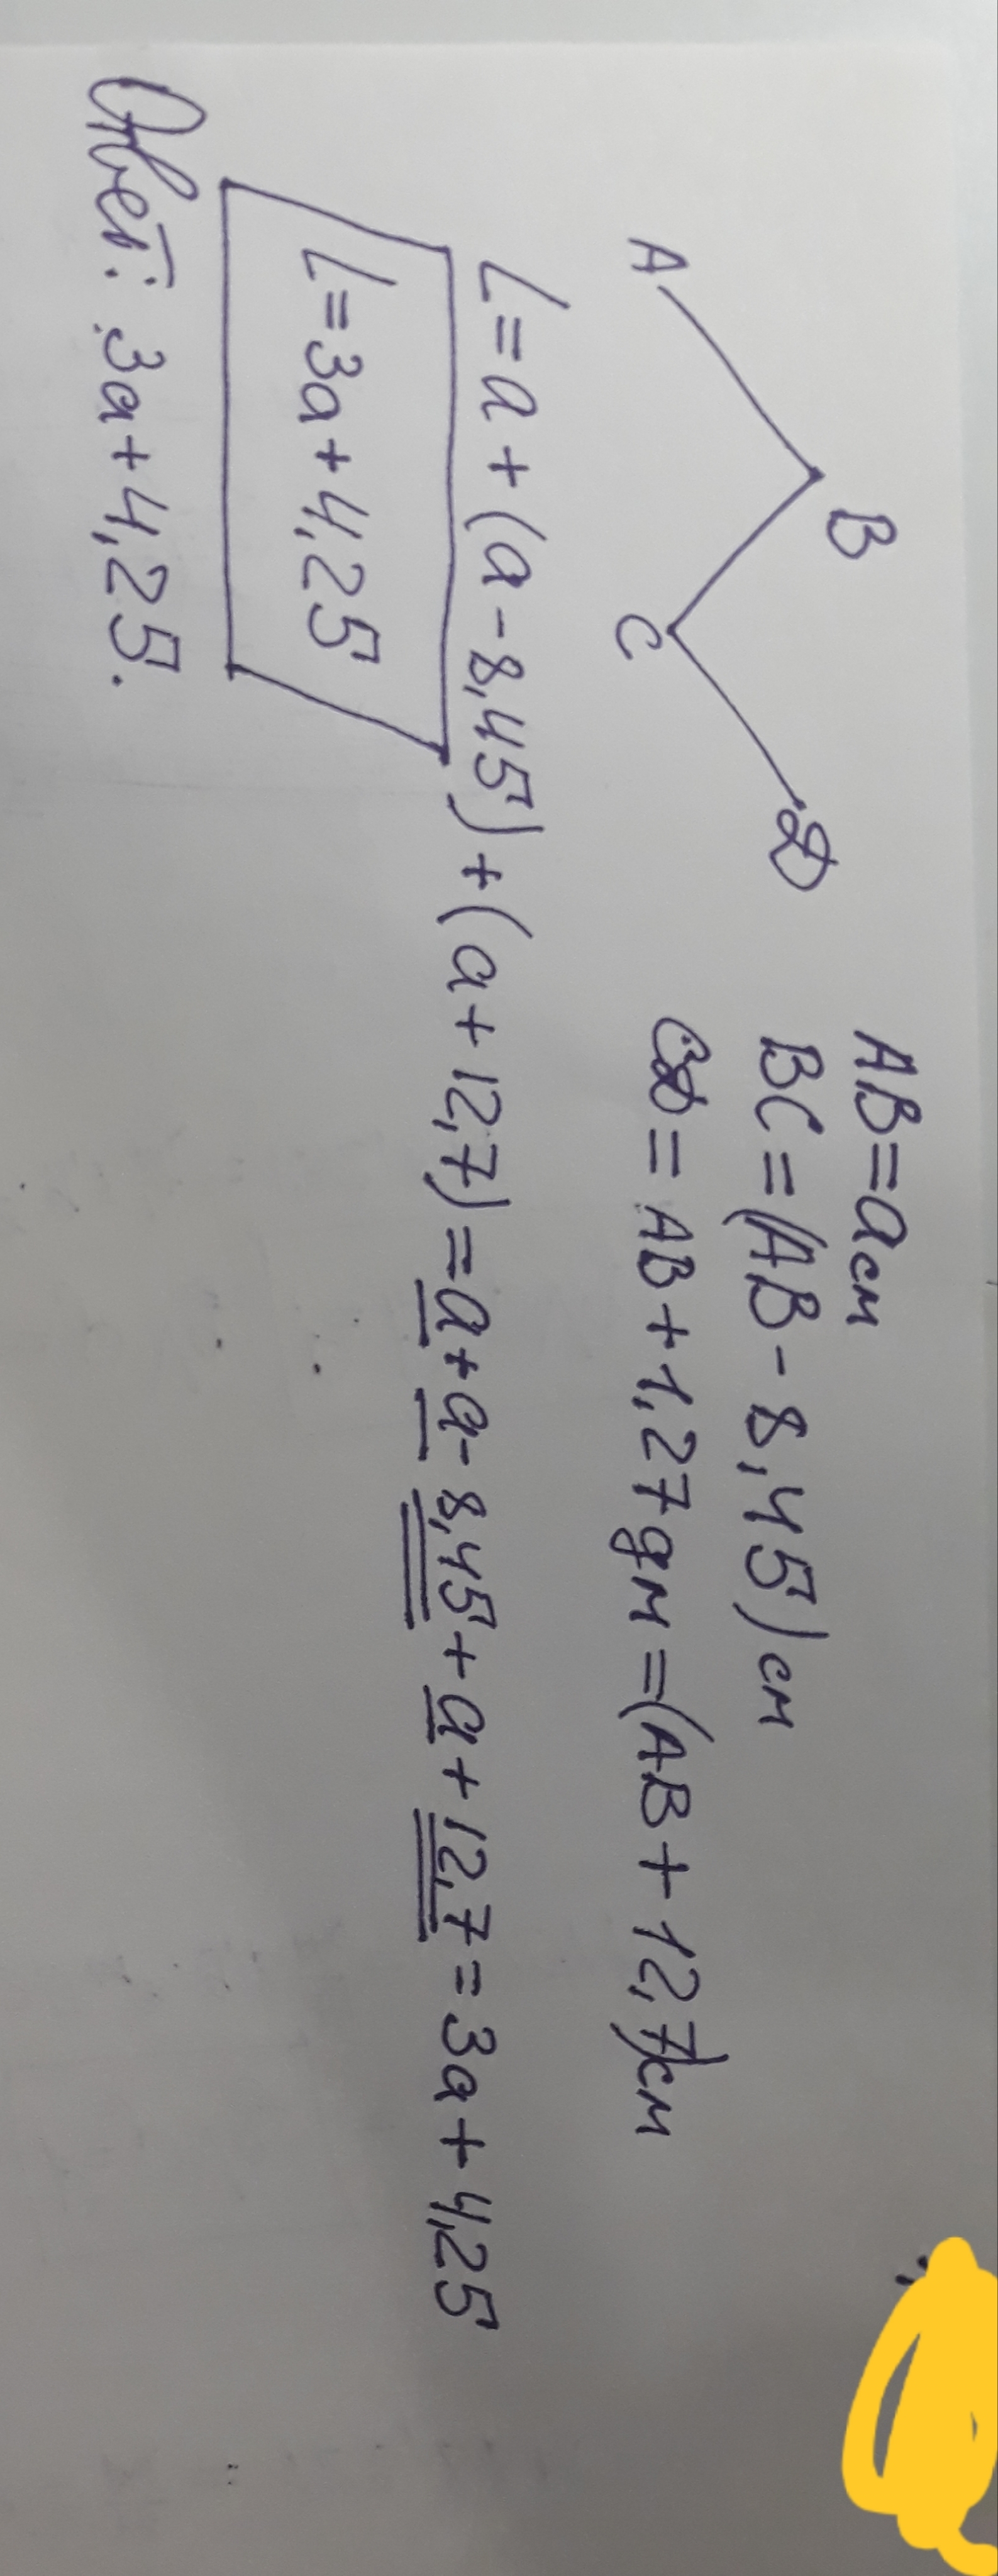 B
A
C
D
AB=a см
BC=(AB-8,45) см
CD=AB+1,27дм=(AB+12,7)см
L=a+(a-8,45)+(a+12,7)=a+a-8,45+a+12,7=3a+4,25
L=3a+4,25
Ответ: 3a+4,25.